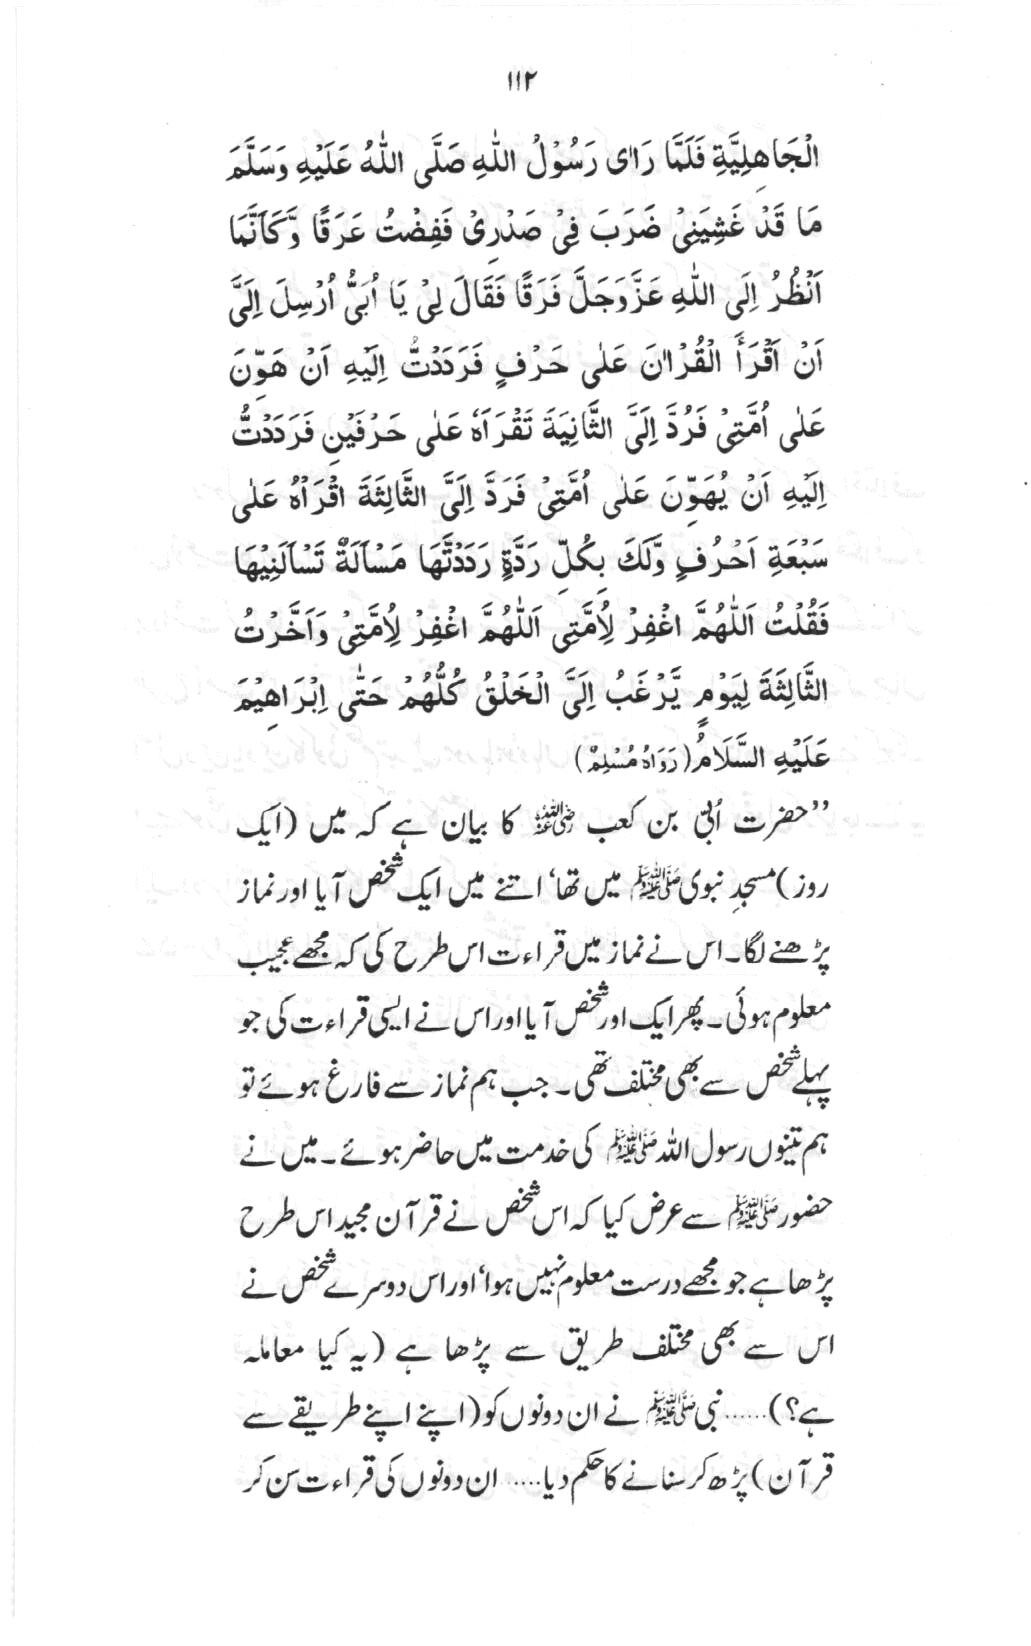 ۱۱۲
الْجَاهِلِيَّةِ فَلَمَّا رَاٰى رَسُوْلُ اللّٰهِ صَلَّى اللّٰهُ عَلَيْهِ وَسَلَّمَ
مَا قَدْ غَشِيَنِيْ ضَرَبَ فِيْ صَدْرِيْ فَفِضْتُ عَرَقًا وَّكَاَنَّمَا
اَنْظُرُ اِلَى اللّٰهِ عَزَّوَجَلَّ فَرَقًا فَقَالَ لِيْ يَا اُبَيُّ اُرْسِلَ اِلَيَّ
اَنْ اَقْرَأَ الْقُرْاٰنَ عَلٰى حَرْفٍ فَرَدَدْتُّ اِلَيْهِ اَنْ هَوِّنَ
عَلٰى اُمَّتِيْ فَرُدَّ اِلَيَّ الثَّانِيَةَ تَقْرَاَهُ عَلٰى حَرْفَيْنِ فَرَدَدْتُّ
اِلَيْهِ اَنْ يُهَوِّنَ عَلٰى اُمَّتِيْ فَرَدَّ اِلَيَّ الثَّالِثَةَ اقْرَاْهُ عَلٰى
سَبْعَةِ اَحْرُفٍ وَّلَكَ بِكُلِّ رَدَّةٍ رَدَدْتَّهَا مَسْاَلَةٌ تَسْاَلَنِيْهَا
فَقُلْتُ اَللّٰهُمَّ اغْفِرْ لِاُمَّتِى اَللّٰهُمَّ اغْفِرْ لِاُمَّتِيْ وَاَخَّرْتُ
الثَّالِثَةَ لِيَوْمٍ يَّرْغَبُ اِلَيَّ الْخَلْقُ كُلُّهُمْ حَتّٰى اِبْرَاهِيْمَ
عَلَيْهِ السَّلَامُ (رَوَاهُ مُسْلِمٌ)
”حضرت اُبیّ بن کعب رضی اللہ عنہ کا بیان ہے کہ میں (ایک
روز) مسجدِ نبوی ﷺ میں تھا‘ اتنے میں ایک شخص آیا اور نماز
پڑھنے لگا۔ اس نے نماز میں قراءت اس طرح کی کہ مجھے عجیب
معلوم ہوئی۔ پھر ایک اور شخص آیا اور اس نے ایسی قراءت کی جو
پہلے شخص سے بھی مختلف تھی۔ جب ہم نماز سے فارغ ہوئے تو
ہم تینوں رسول اللہ ﷺ کی خدمت میں حاضر ہوئے۔ میں نے
حضور ﷺ سے عرض کیا کہ اس شخص نے قرآن مجید اس طرح
پڑھا ہے جو مجھے درست معلوم نہیں ہوا‘ اور اس دوسرے شخص نے
اس سے بھی مختلف طریق سے پڑھا ہے (یہ کیا معاملہ
ہے؟)...... نبی ﷺ نے ان دونوں کو (اپنے اپنے طریقے سے
قرآن) پڑھ کر سنانے کا حکم دیا..... ان دونوں کی قراءت سن کر